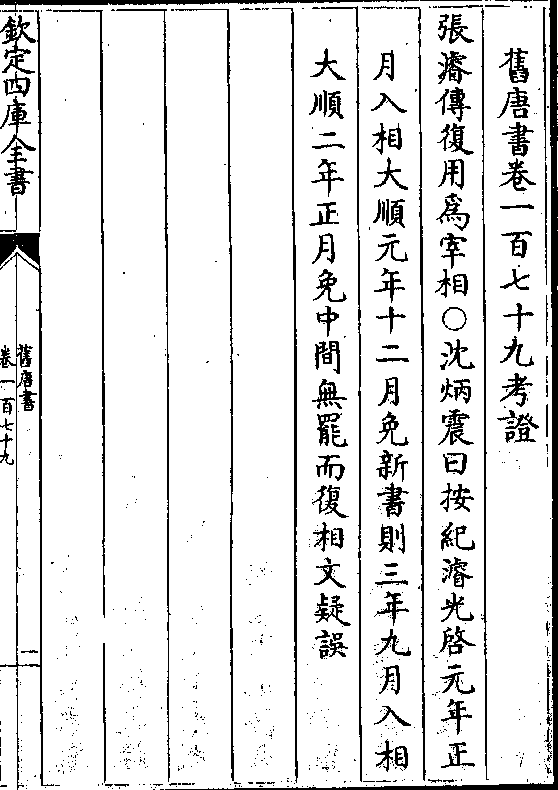 舊唐書卷一百七十九考證
張濬傳復用爲宰相○沈炳震曰按紀濬光啓元年正
月入相大順元年十二月免新書則三年九月入相
大順二年正月免中間無罷而復相文疑誤
欽定四庫全書
舊唐書
卷一百七十九
二